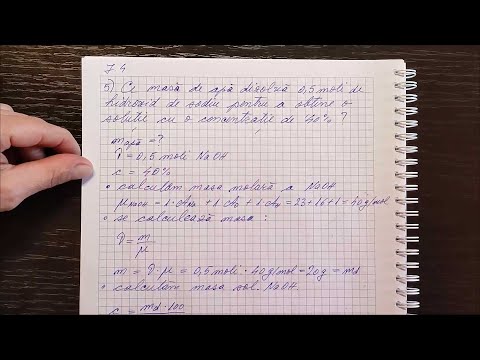 7.4
5) Ce masă de apă dizolvă 0,5 moli de
hidroxid de sodiu pentru a obține o
soluție cu o concentrație de 40%?
mapă = ?
ν = 0,5 moli NaOH
c = 40%
• calculăm masa molară a NaOH
μNaOH = 1·ANa + 1·AO + 1·AH = 23+16+1 = 40g/mol
• se calculează masa :
ν = m/μ
m = ν·μ = 0,5moli · 40g/mol = 20g = md
• calculăm masa sol. NaOH
c = md·100